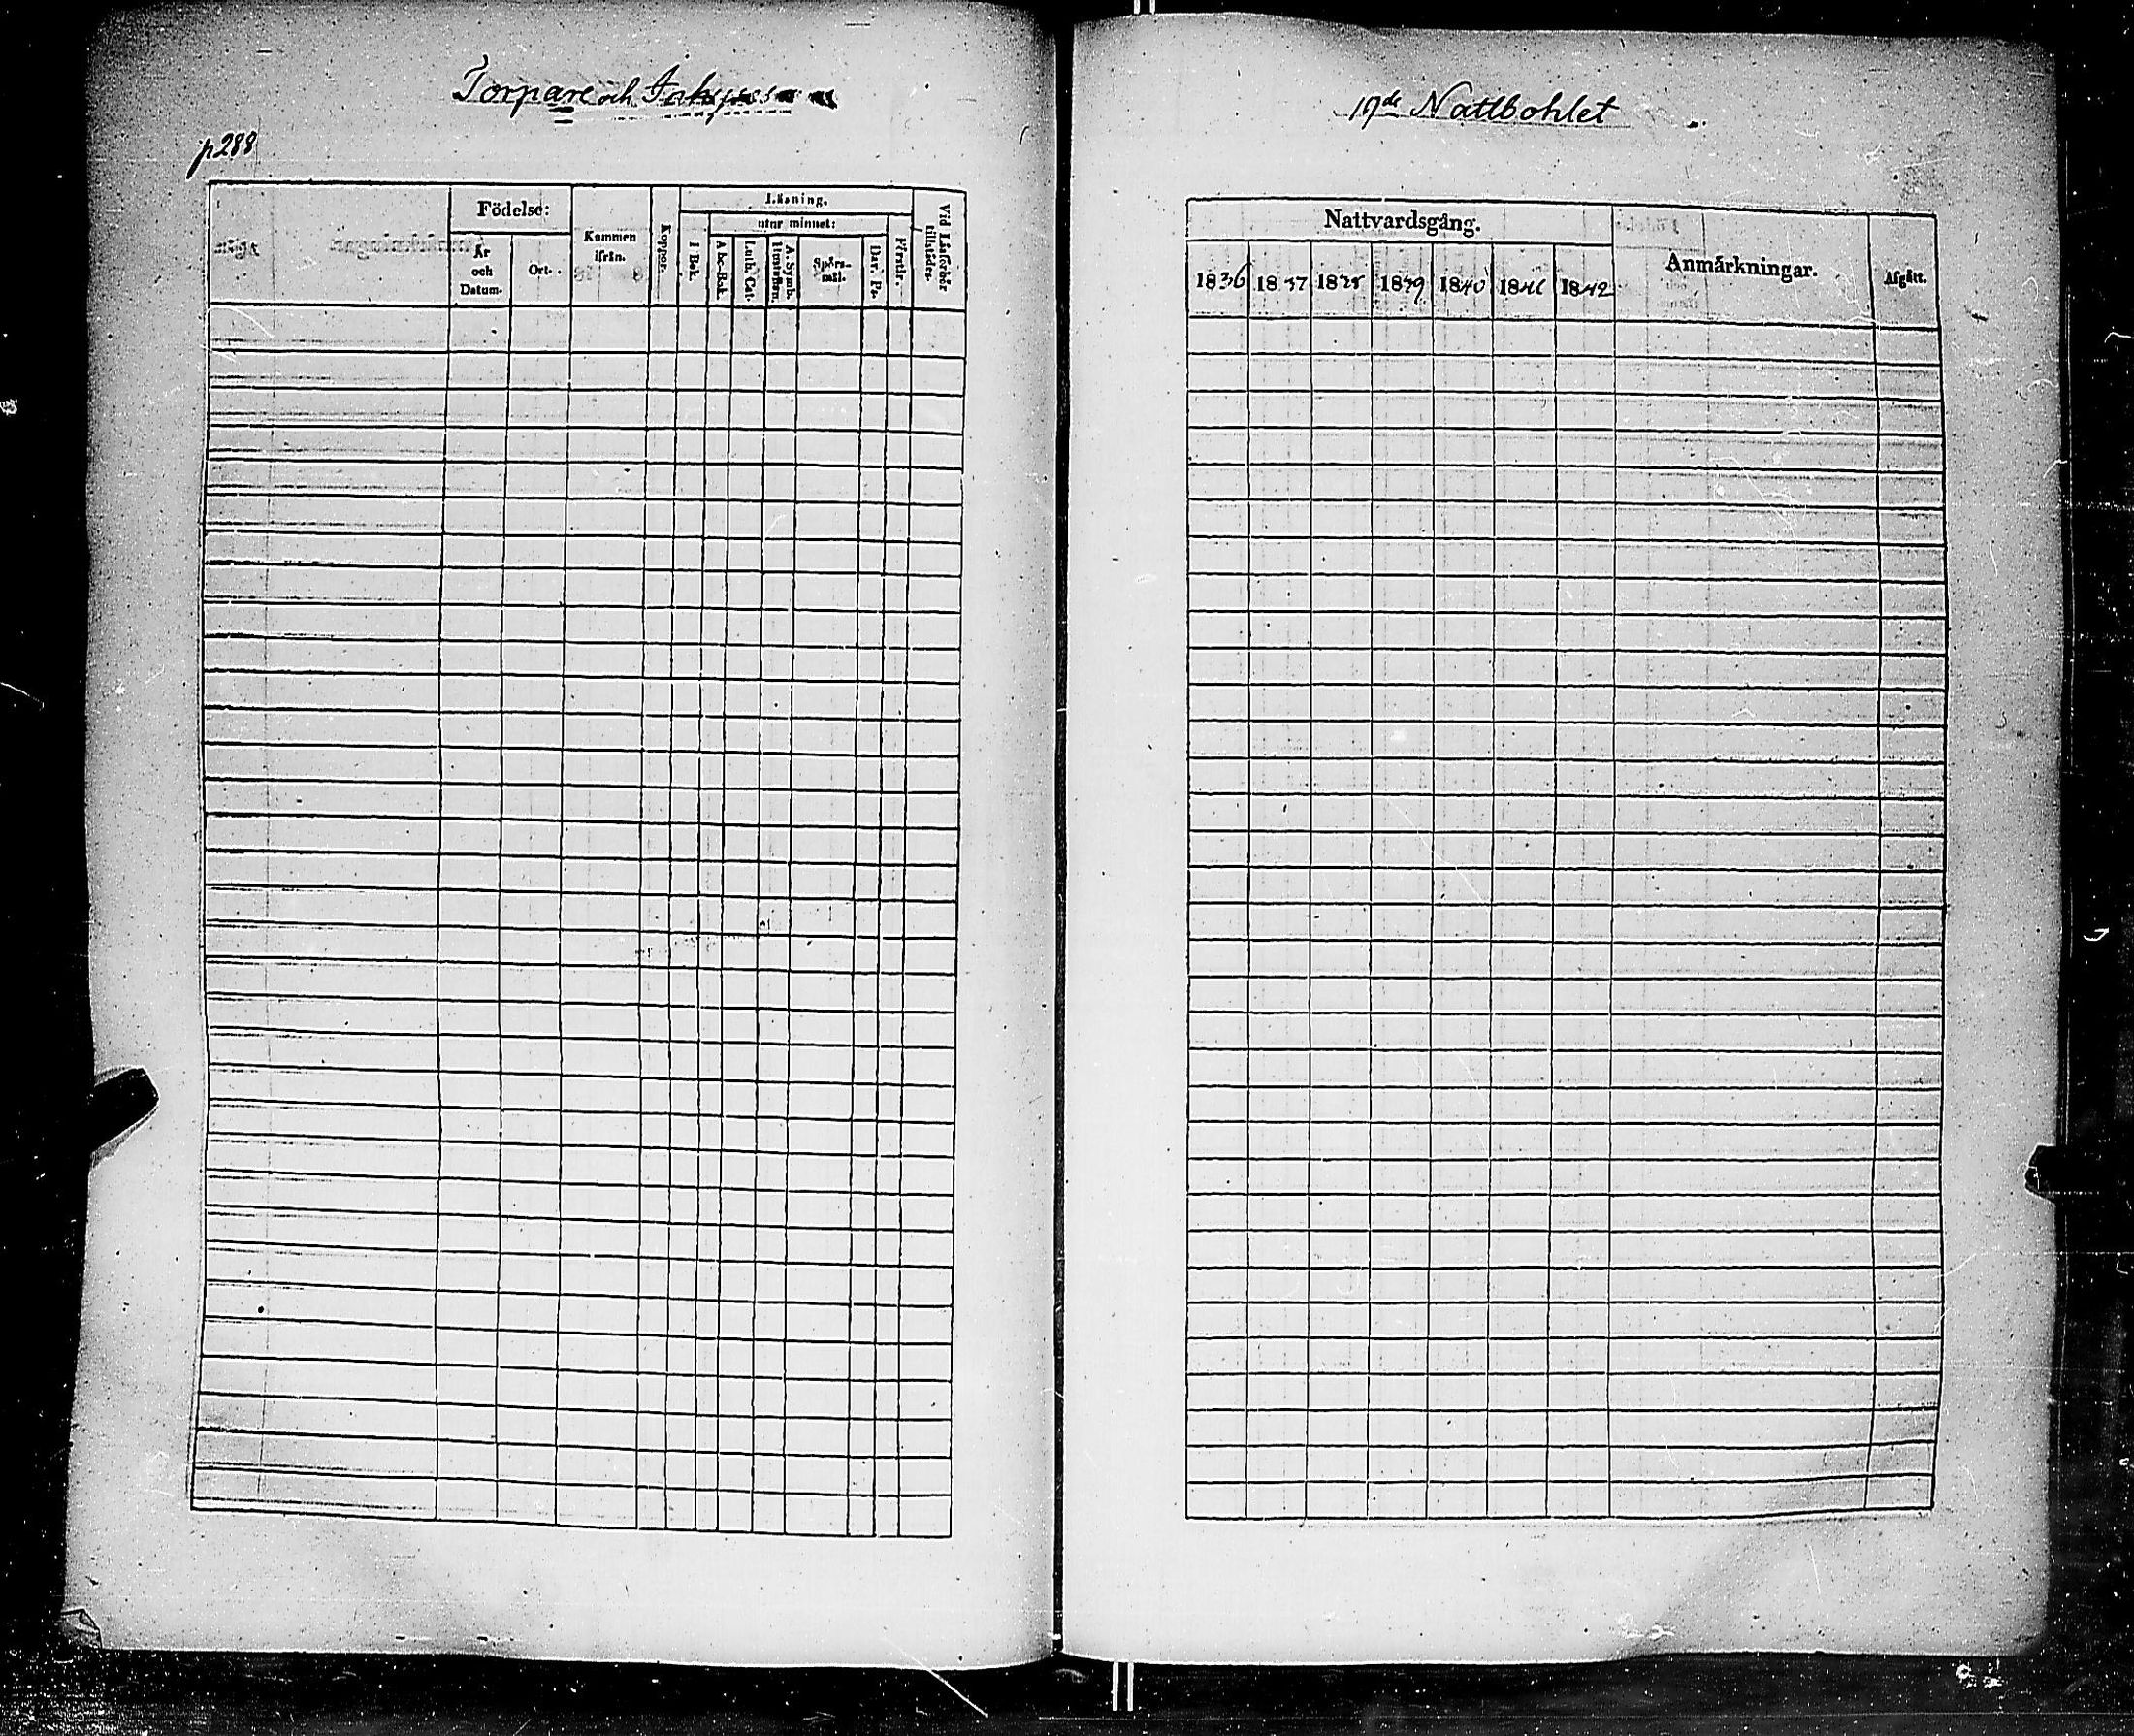 Torpare och
p 288
Födelse:
År och Datum.
Ort.
Kommen ifrån.
Koppor.
Läsning.
I Bok.
utur minnet:
Abc-Bok.
Luth. Cat.
A. Symb.
Spörs-mål.
Dav. Ps.
Vid Läsförhör tillstädes.
17de Nattbohlet
Nattvardsgång.
1836 1837 1838 1839 1840 1841 1842
Anmärkningar.
Afgått.